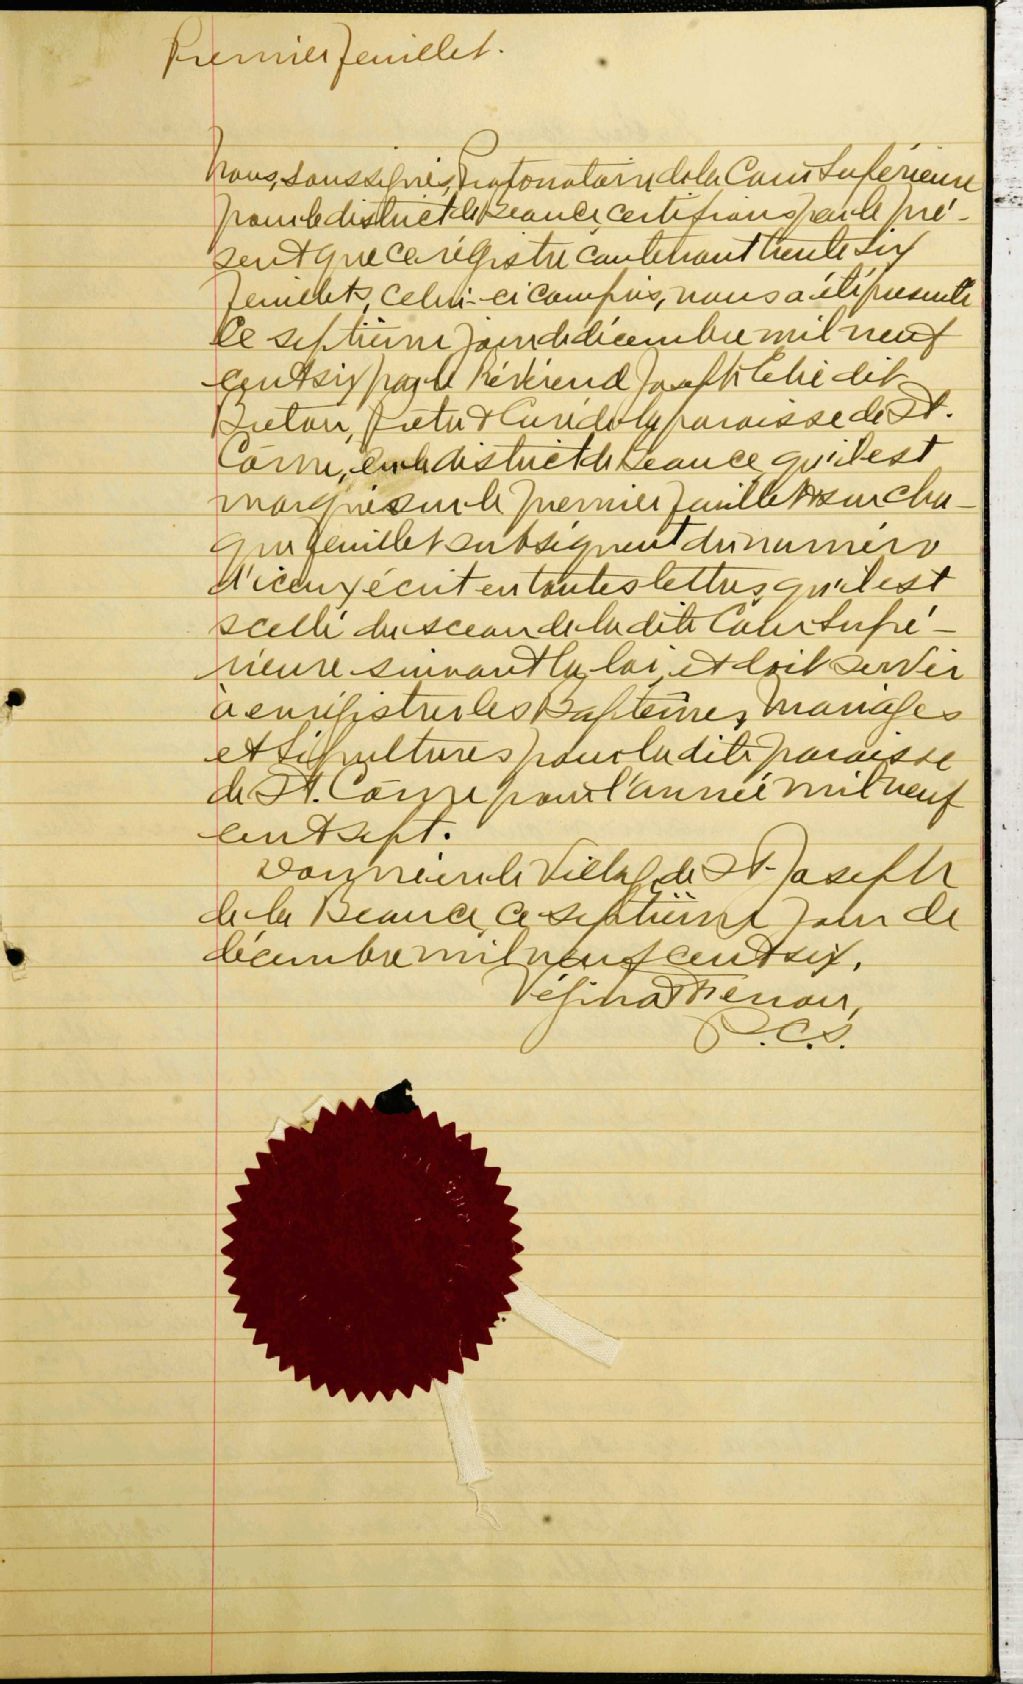 Premier feuillet.
Nous, soussignés, Protonotaire de la Cour Supérieure
pour le district de Beauce certifions par le pré-
sent que ce régistre contenant trente six
feuillets, celui-ci compris, nous a été présenté
ce septième jour de décembre mil neuf
cent six par le Révérend Joseph Elie dit
Breton, prêtre & Curé de la paroisse de St.
Côme, en le district de Beauce, qu'il est
marqué sur le premier feuillet & sur cha-
que feuillet subséquent du numéro
d'iceux écrit en toutes lettres, qu'il est
scellé du sceau de la dite Cour Supé-
rieure suivant la loi, et doit servir
à enrégistrer les Baptêmes, Mariages
et Sépultures pour la dite paroisse
de St. Côme pour l'année mil neuf
cent sept.
Donné en le Village de St. Joseph
de la Beauce, ce septième jour de
décembre mil neuf cent six.
Vézina &
P.C.S.